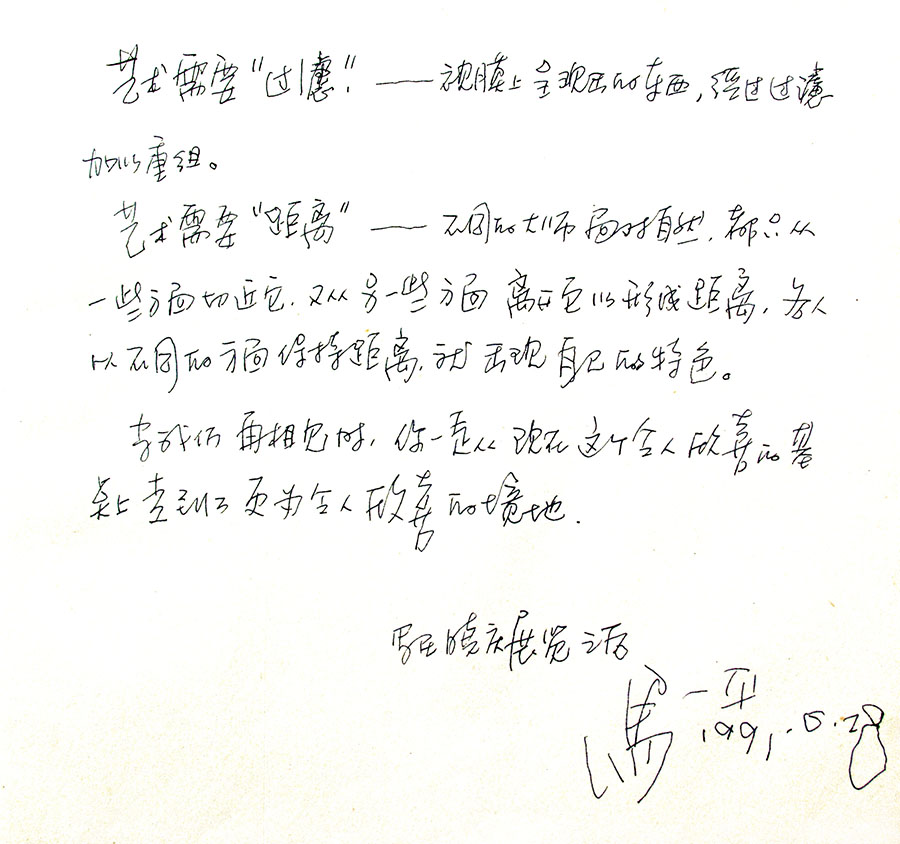 艺术需要“过滤”——视膜上呈现出的东西，经过过滤
加以重组。
艺术需要“距离”——不同的大师面对自然，都只从
一些方面切近它，又从另一些方面离开它以形成距离，各人
以不同的方面保持距离，就出现自己的特色。
当我们再相见时，你一定从现在这个令人欣喜的基
点上走到了更为令人欣喜的境地。
写在晓庆展览之后
馬一平
1991.5.28